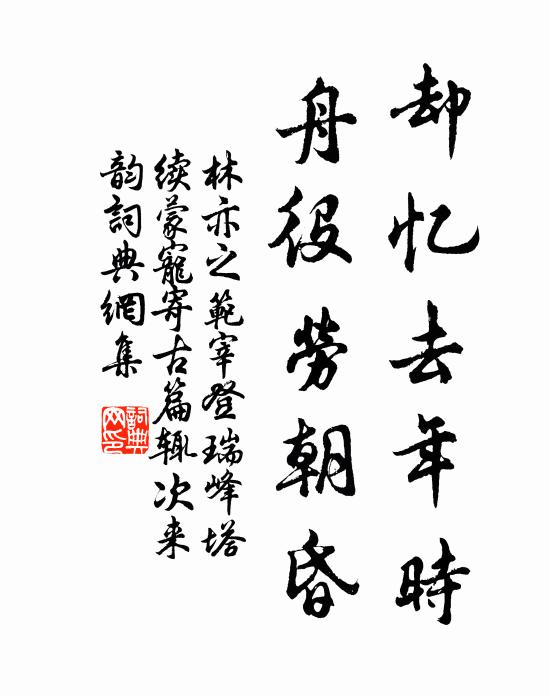 却忆去年時
舟役勞朝昏
林亦之範宰登瑞峰塔
续蒙寵寄古篇辄次来
韵詞典網集
詞典
网印